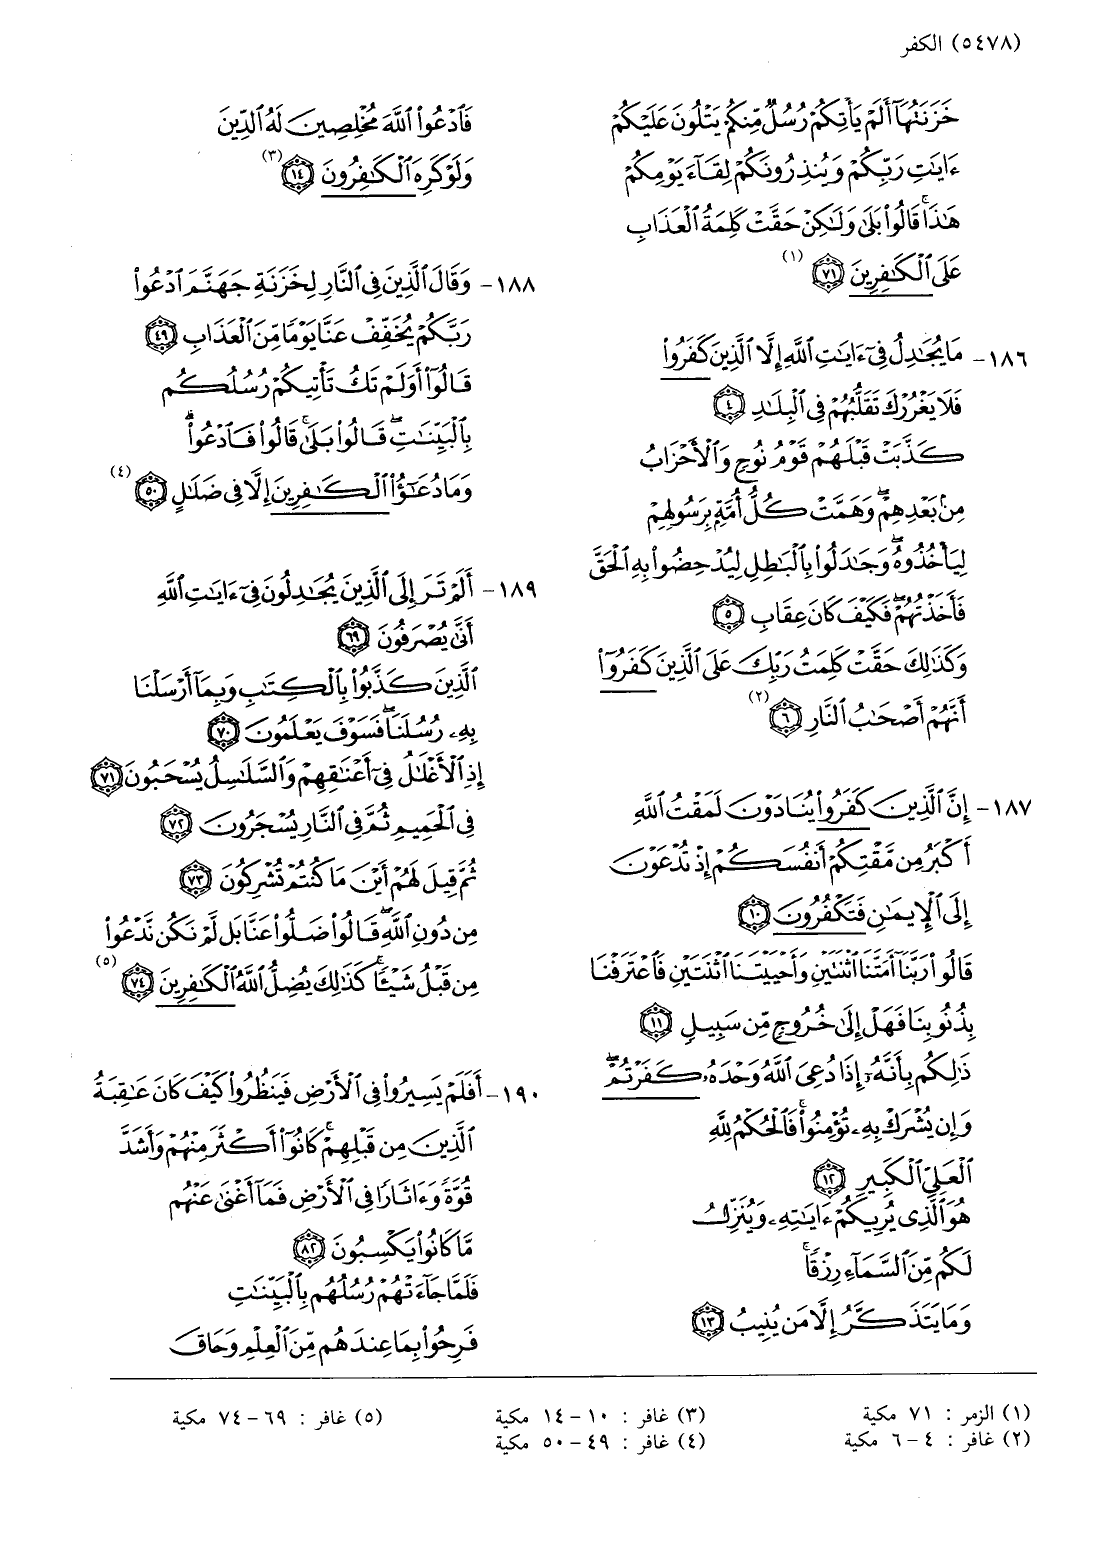 (٥٤٧٨) الكفر
خَزَنَتُهَآ أَلَمْ يَأْتِكُمْ رُسُلٌ مِّنكُمْ يَتْلُونَ عَلَيْكُمْ
ءَايَـٰتِ رَبِّكُمْ وَيُنذِرُونَكُمْ لِقَآءَ يَوْمِكُمْ
هَـٰذَا ۚ قَالُوا۟ بَلَىٰ وَلَـٰكِنْ حَقَّتْ كَلِمَةُ ٱلْعَذَابِ
عَلَى ٱلْكَـٰفِرِينَ ﴿٧١﴾ (١)
١٨٦- مَا يُجَـٰدِلُ فِىٓ ءَايَـٰتِ ٱللَّهِ إِلَّا ٱلَّذِينَ كَفَرُوا۟
فَلَا يَغْرُرْكَ تَقَلُّبُهُمْ فِى ٱلْبِلَـٰدِ ﴿٤﴾
كَذَّبَتْ قَبْلَهُمْ قَوْمُ نُوحٍ وَٱلْأَحْزَابُ
مِنۢ بَعْدِهِمْ ۖ وَهَمَّتْ كُلُّ أُمَّةٍۭ بِرَسُولِهِمْ
لِيَأْخُذُوهُ ۖ وَجَـٰدَلُوا۟ بِٱلْبَـٰطِلِ لِيُدْحِضُوا۟ بِهِ ٱلْحَقَّ
فَأَخَذْتُهُمْ ۖ فَكَيْفَ كَانَ عِقَابِ ﴿٥﴾
وَكَذَٰلِكَ حَقَّتْ كَلِمَتُ رَبِّكَ عَلَى ٱلَّذِينَ كَفَرُوٓا۟
أَنَّهُمْ أَصْحَـٰبُ ٱلنَّارِ ﴿٦﴾ (٢)
١٨٧- إِنَّ ٱلَّذِينَ كَفَرُوا۟ يُنَادَوْنَ لَمَقْتُ ٱللَّهِ
أَكْبَرُ مِن مَّقْتِكُمْ أَنفُسَكُمْ إِذْ تُدْعَوْنَ
إِلَى ٱلْإِيمَـٰنِ فَتَكْفُرُونَ ﴿١٠﴾
قَالُوا۟ رَبَّنَآ أَمَتَّنَا ٱثْنَتَيْنِ وَأَحْيَيْتَنَا ٱثْنَتَيْنِ فَٱعْتَرَفْنَا
بِذُنُوبِنَا فَهَلْ إِلَىٰ خُرُوجٍ مِّن سَبِيلٍ ﴿١١﴾
ذَٰلِكُم بِأَنَّهُۥٓ إِذَا دُعِىَ ٱللَّهُ وَحْدَهُۥ كَفَرْتُمْ ۖ
وَإِن يُشْرَكْ بِهِۦ تُؤْمِنُوا۟ ۚ فَٱلْحُكْمُ لِلَّهِ
ٱلْعَلِىِّ ٱلْكَبِيرِ ﴿١٢﴾
هُوَ ٱلَّذِى يُرِيكُمْ ءَايَـٰتِهِۦ وَيُنَزِّلُ
لَكُم مِّنَ ٱلسَّمَآءِ رِزْقًا ۚ
وَمَا يَتَذَكَّرُ إِلَّا مَن يُنِيبُ ﴿١٣﴾
فَٱدْعُوا۟ ٱللَّهَ مُخْلِصِينَ لَهُ ٱلدِّينَ
وَلَوْ كَرِهَ ٱلْكَـٰفِرُونَ ﴿١٤﴾ (٣)
١٨٨- وَقَالَ ٱلَّذِينَ فِى ٱلنَّارِ لِخَزَنَةِ جَهَنَّمَ ٱدْعُوا۟
رَبَّكُمْ يُخَفِّفْ عَنَّا يَوْمًا مِّنَ ٱلْعَذَابِ ﴿٤٩﴾
قَالُوٓا۟ أَوَلَمْ تَكُ تَأْتِيكُمْ رُسُلُكُم
بِٱلْبَيِّنَـٰتِ ۖ قَالُوا۟ بَلَىٰ ۚ قَالُوا۟ فَٱدْعُوا۟ ۗ
وَمَا دُعَـٰٓؤُا۟ ٱلْكَـٰفِرِينَ إِلَّا فِى ضَلَـٰلٍ ﴿٥٠﴾ (٤)
١٨٩- أَلَمْ تَرَ إِلَى ٱلَّذِينَ يُجَـٰدِلُونَ فِىٓ ءَايَـٰتِ ٱللَّهِ
أَنَّىٰ يُصْرَفُونَ ﴿٦٩﴾
ٱلَّذِينَ كَذَّبُوا۟ بِٱلْكِتَـٰبِ وَبِمَآ أَرْسَلْنَا
بِهِۦ رُسُلَنَا ۖ فَسَوْفَ يَعْلَمُونَ ﴿٧٠﴾
إِذِ ٱلْأَغْلَـٰلُ فِىٓ أَعْنَـٰقِهِمْ وَٱلسَّلَـٰسِلُ يُسْحَبُونَ ﴿٧١﴾
فِى ٱلْحَمِيمِ ثُمَّ فِى ٱلنَّارِ يُسْجَرُونَ ﴿٧٢﴾
ثُمَّ قِيلَ لَهُمْ أَيْنَ مَا كُنتُمْ تُشْرِكُونَ ﴿٧٣﴾
مِن دُونِ ٱللَّهِ ۖ قَالُوا۟ ضَلُّوا۟ عَنَّا بَل لَّمْ نَكُن نَّدْعُوا۟
مِن قَبْلُ شَيْـًٔا ۚ كَذَٰلِكَ يُضِلُّ ٱللَّهُ ٱلْكَـٰفِرِينَ ﴿٧٤﴾ (٥)
١٩٠- أَفَلَمْ يَسِيرُوا۟ فِى ٱلْأَرْضِ فَيَنظُرُوا۟ كَيْفَ كَانَ عَـٰقِبَةُ
ٱلَّذِينَ مِن قَبْلِهِمْ ۚ كَانُوٓا۟ أَكْثَرَ مِنْهُمْ وَأَشَدَّ
قُوَّةً وَءَاثَارًا فِى ٱلْأَرْضِ فَمَآ أَغْنَىٰ عَنْهُم
مَّا كَانُوا۟ يَكْسِبُونَ ﴿٨٢﴾
فَلَمَّا جَآءَتْهُمْ رُسُلُهُم بِٱلْبَيِّنَـٰتِ
فَرِحُوا۟ بِمَا عِندَهُم مِّنَ ٱلْعِلْمِ وَحَاقَ
(١) الزمر : ٧١ مكية
(٢) غافر : ٤ – ٦ مكية
(٣) غافر : ١٠ – ١٤ مكية
(٤) غافر : ٤٩ – ٥٠ مكية
(٥) غافر : ٦٩ – ٧٤ مكية